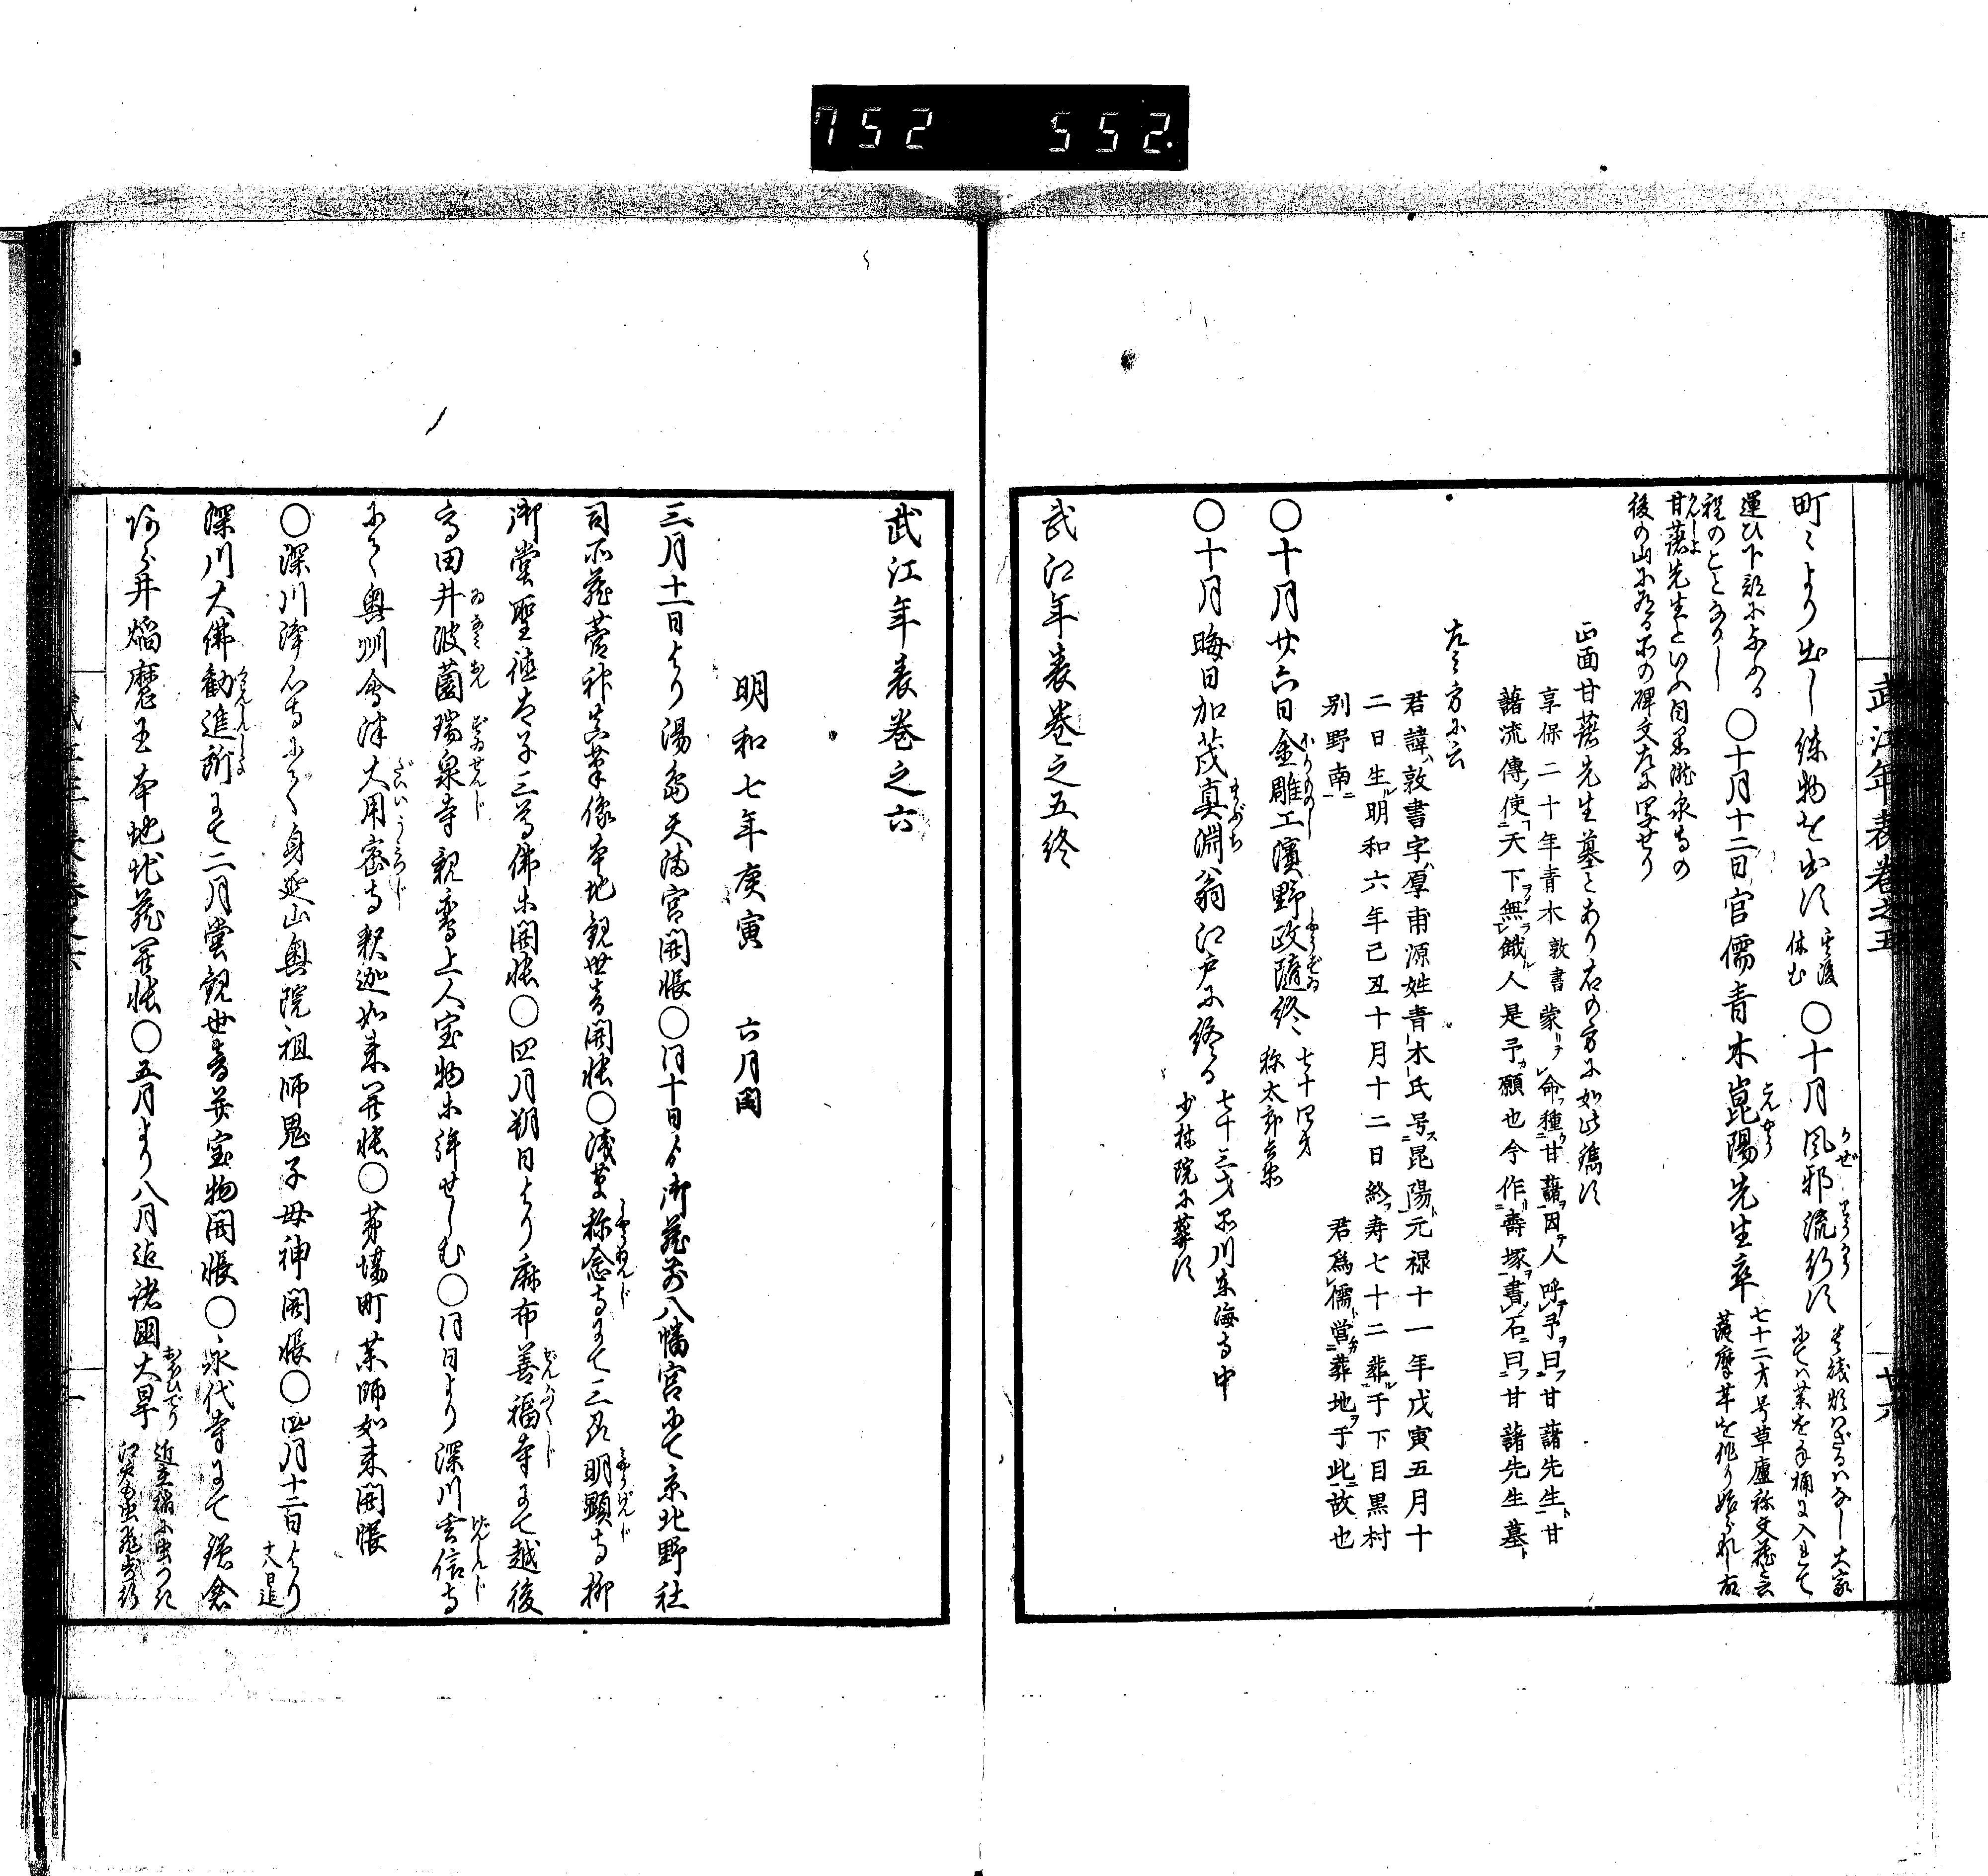 752 552.
武江年表巻之五
廿六
町〻より出し練物を出す 其後休む ○十月風邪流行す
運ひ下部に与ふる
程のことなりし
○十月十二日官儒青木崑陽先生卒 七十二才号草廬称文蔵
甘藷先生といふ目黒瀧泉寺の
後の山にある所の碑文左に写せり
正面甘藷先生墓とあり右の方に如此鐫す
享保二十年青木敦書蒙命種甘藷因人呼予曰甘藷先生甘
藷流傳使天下無餓人是予願也今作壽塚書石曰甘藷先生墓
左之方に云
君諱敦書字厚甫源姓青木氏号昆陽元禄十一年戊寅五月十
二日生明和六年己丑十月十二日終寿七十二葬于下目黒村
別野南 君爲儒當葬地于此故也
○十月廿六日金雕工濱野政隨終 七十四才 称太郎兵衛
○十月晦日加茂真淵翁江戸に終る 七十三才品川東海寺中
少林院に葬す
武江年表巻之五終
武江年表巻之六
明和七年庚寅 六月閏
三月十一日より湯島天満宮開帳○同十日より御蔵前八幡宮にて京北野社
司不菴菅神真筆像本地観世音開帳○浅草称念寺にて三州明顕寺柳
御堂聖徳太子三尊佛开帳○四月朔日より麻布善福寺にて越後
高田井波園瑞泉寺親鸞上人宝物等拝せしむ○同日より深川玄信寺
にて奥州會津大用密寺釈迦如来開帳○茅場町薬師如来開帳
○深川浄心寺にて身延山奥院祖師鬼子母神開帳○四月十二日より 十八日迄
深川大佛勧進所にて二月堂観世音并宝物開帳○永代寺にて鎌倉
焔魔王本地地蔵開帳○五月より八月迄諸国大旱 近在稲に虫つき